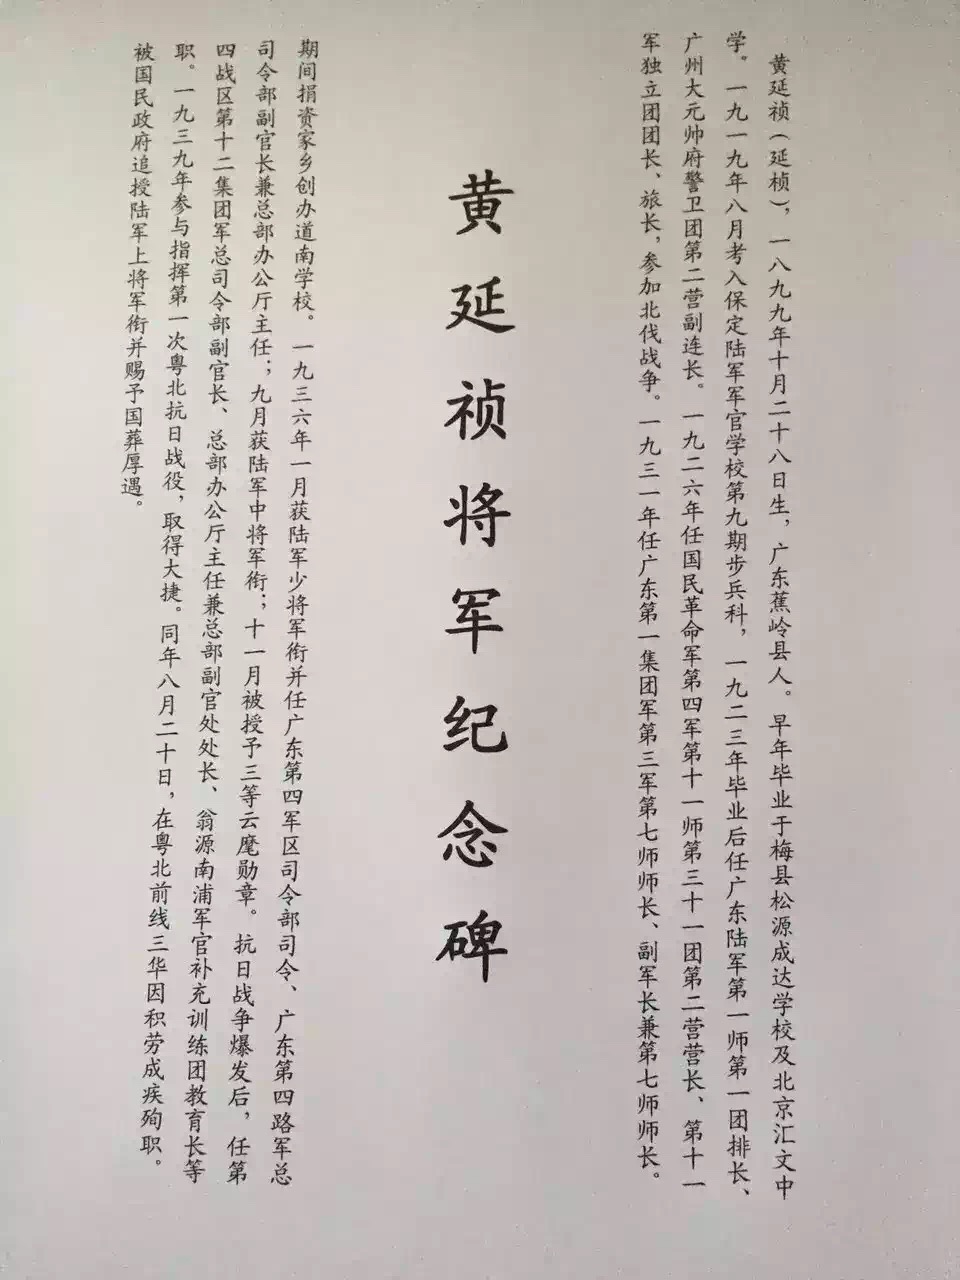 黄延祯（延桢），一八九九年十月二十八日生，广东蕉岭县人。早年毕业于梅县松源成达学校及北京汇文中
学。一九一九年八月考入保定陆军军官学校第九期步兵科，一九二三年毕业后任广东陆军第一师第一团排长、
广州大元帅府警卫团第二营副连长。一九二六年任国民革命军第四军第十一师第三十一团第二营营长、第十一
军独立团团长、旅长，参加北伐战争。一九三一年任广东第一集团军第三军第七师师长、副军长兼第七师师长。
黄延祯将军纪念碑
期间捐资家乡创办道南学校。一九三六年一月获陆军少将军衔并任广东第四军区司令部司令、广东第四路军总
司令部副官长兼总部办公厅主任；九月获陆军中将军衔；十一月被授予三等云麾勋章。抗日战争爆发后，任第
四战区第十二集团军总司令部副官长、总部办公厅主任兼总部副官处处长、翁源南浦军官补充训练团教育长等
职。一九三九年参与指挥第一次粤北抗日战役，取得大捷。同年八月二十日，在粤北前线三华因积劳成疾殉职。
被国民政府追授陆军上将军衔并赐予国葬厚遇。